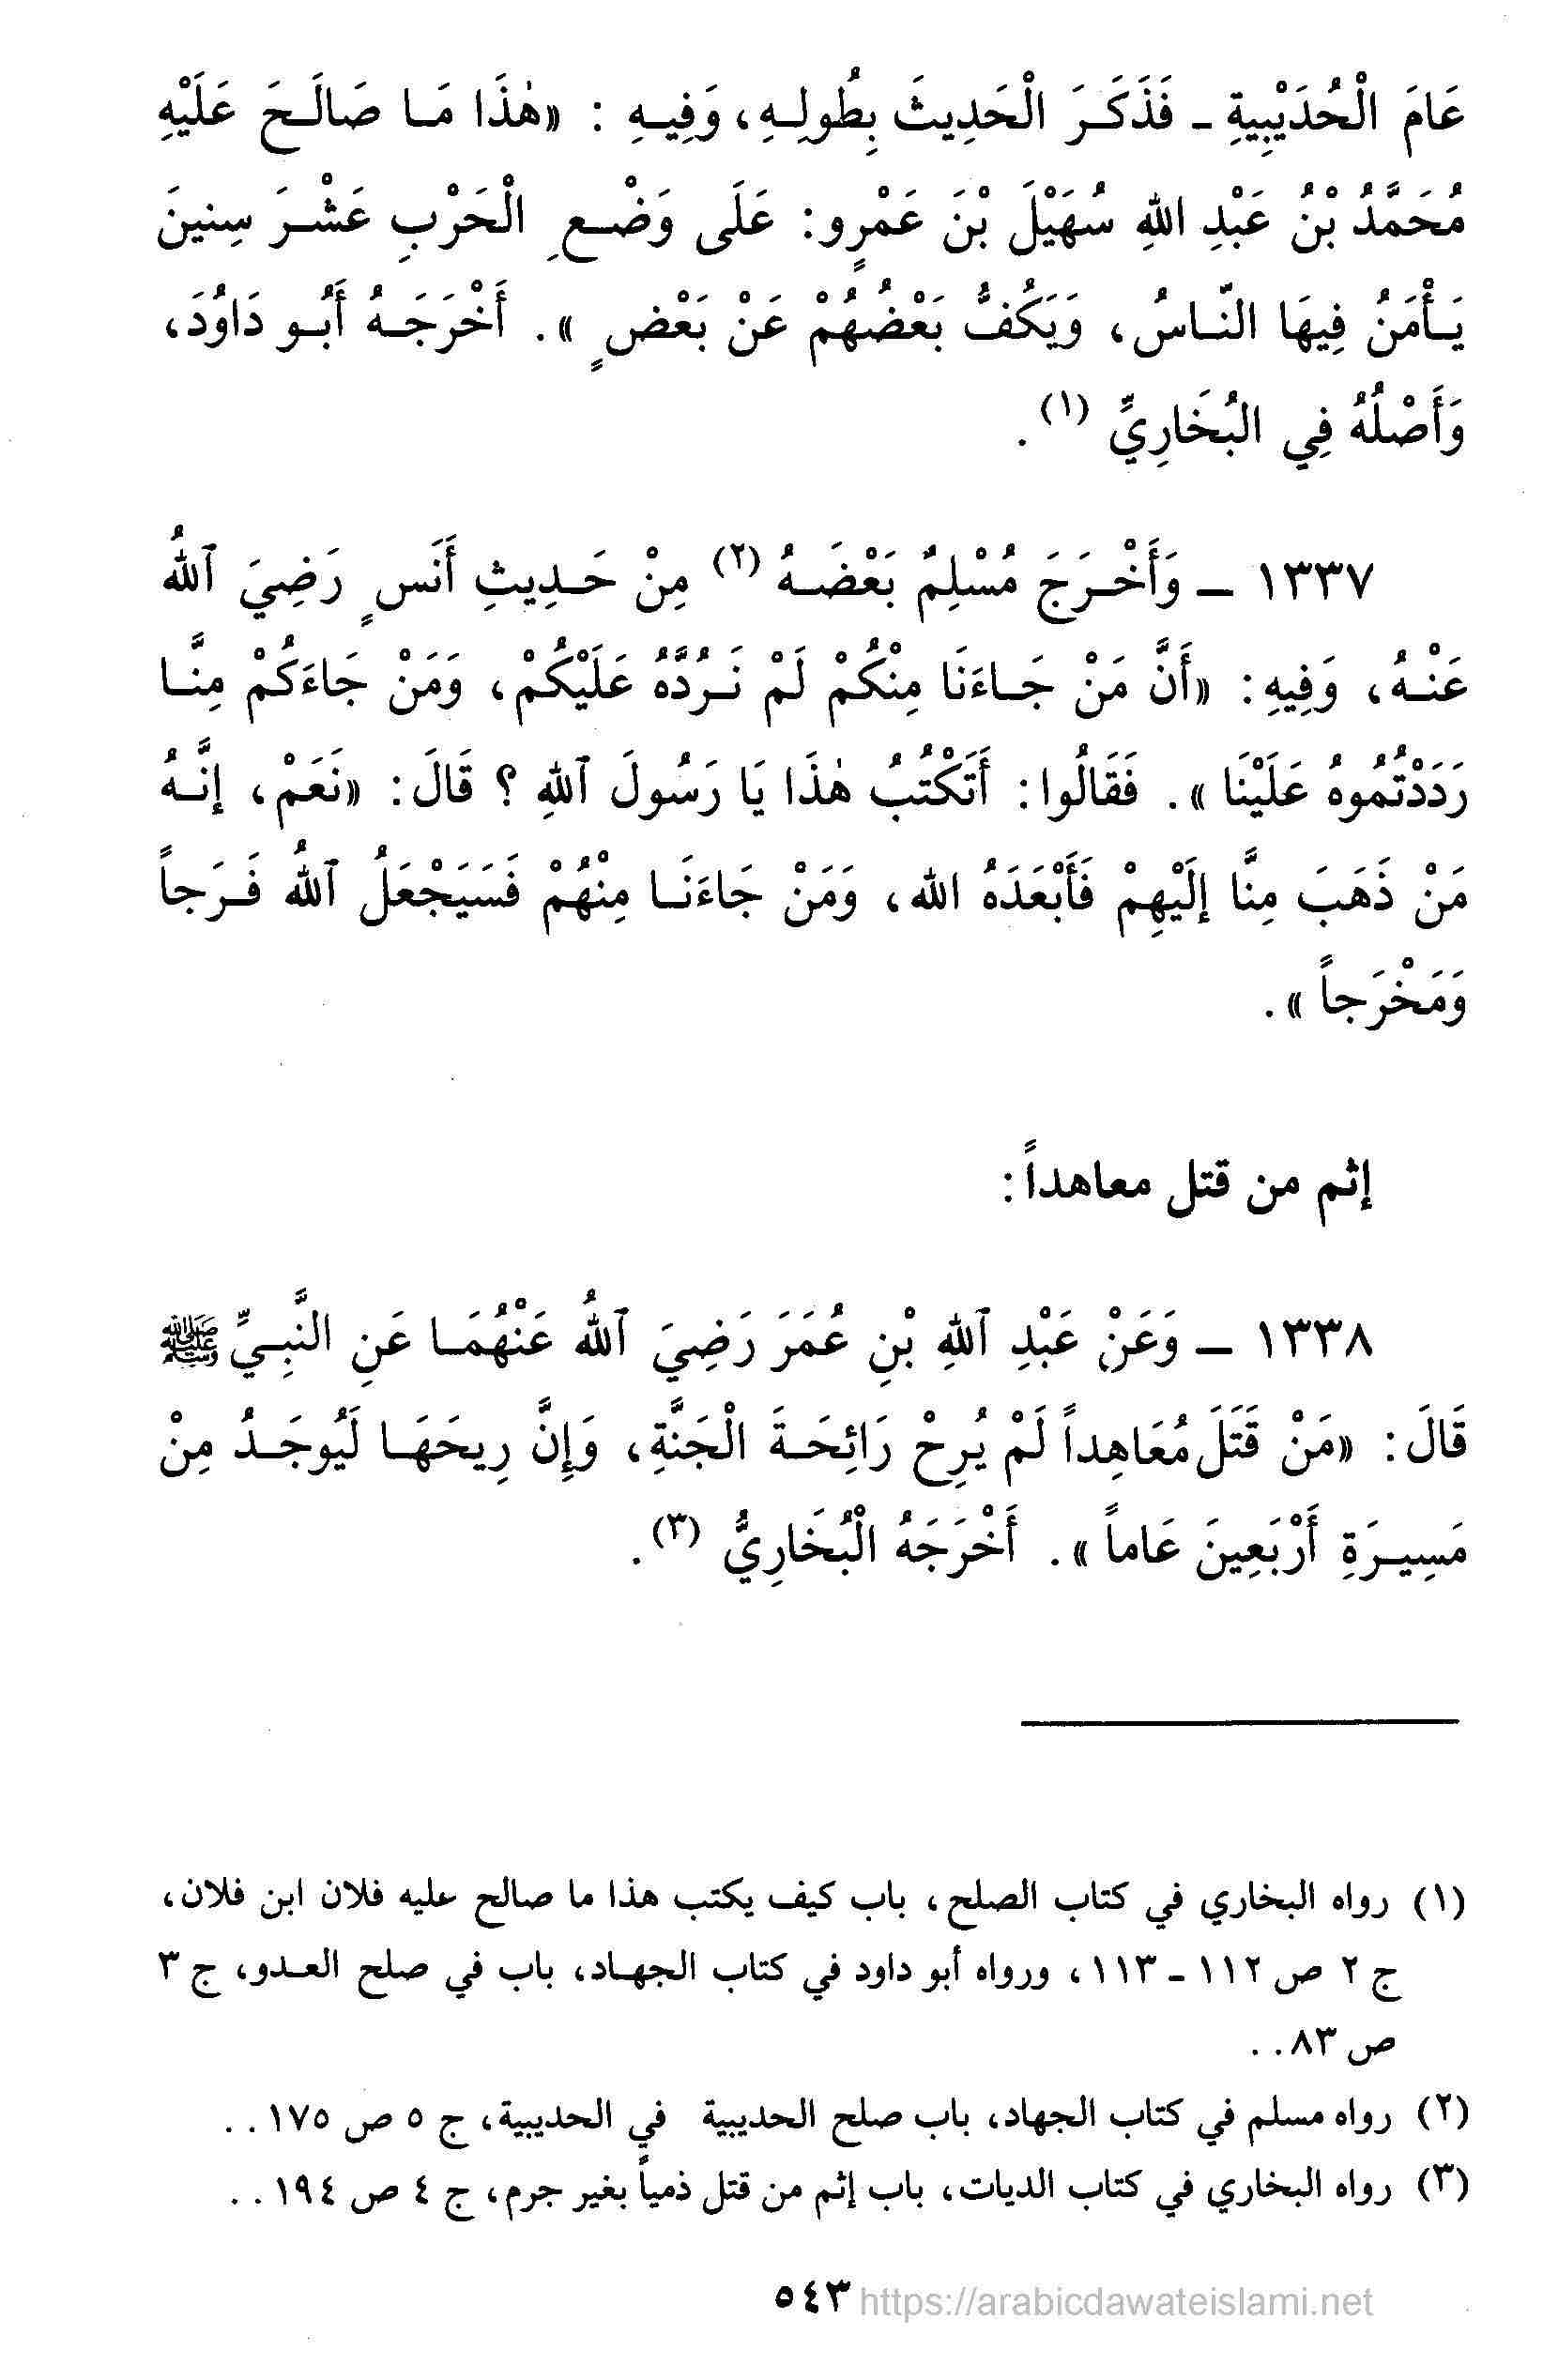 عَامَ الْحُدَيْبِيةِ ـ فَذَكَـرَ الْحَدِيثَ بِطُولِـهِ، وَفِيـهِ : «هٰذَا مَـا صَالَـحَ عَلَيْهِ
مُحَمَّدُ بْنُ عَبْدِ اللهِ سُهَيْلَ بْنَ عَمْرٍو: عَلَى وَضْـعِ الْحَرْبِ عَشْـرَ سِنينَ
يَـأْمَنُ فِيهَا النّـاسُ، وَيَكُفُّ بَعْضُهُمْ عَنْ بَعْضٍ ». أَخْرَجَـهُ أَبُـو دَاوُدَ،
وَأَصْلُهُ فِي البُخَارِيِّ (١) .
١٣٣٧ ـ وَأَخْـرَجَ مُسْلِمٌ بَعْضَـهُ (٢) مِنْ حَـدِيثِ أَنَسٍ رَضِيَ ٱللهُ
عَنْـهُ، وَفِيهِ: «أَنَّ مَنْ جَـاءَنَا مِنْكُمْ لَمْ نَـرُدَّهُ عَلَيْكُمْ، وَمَنْ جَاءَكُمْ مِنَّـا
رَدَدْتُمُوهُ عَلَيْنَا ». فَقَالُوا: أَتَكْتُبُ هٰذَا يَا رَسُولَ ٱللهِ ؟ قَالَ: «نَعَمْ، إنَّـهُ
مَنْ ذَهَبَ مِنَّا إلَيْهِمْ فَأَبْعَدَهُ الله، وَمَنْ جَاءَنَـا مِنْهُمْ فَسَيَجْعَلُ ٱللهُ فَـرَجاً
وَمَخْرَجاً ».
إثم من قتل معاهداً:
١٣٣٨ ـ وَعَنْ عَبْدِ ٱللهِ بْنِ عُمَرَ رَضِيَ ٱللهُ عَنْهُمَـا عَنِ النَّبِـيِّ ﷺ
قَالَ: «مَنْ قَتَلَ مُعَاهِداً لَمْ يُرِحْ رَائِحَـةَ الْجَنَّةِ، وَإِنَّ رِيحَهَـا لَيُوجَـدُ مِنْ
مَسِيـرَةِ أَرْبَعِينَ عَاماً ». أَخْرَجَهُ الْبُخَارِيُّ (٣).
(١) رواه البخاري في كتاب الصلح، باب كيف يكتب هذا ما صالح عليه فلان ابن فلان،
ج ٢ ص ١١٢ ـ ١١٣، ورواه أبو داود في كتاب الجهـاد، باب في صلح العـدو، ج ٣
ص ٨٣..
(٢) رواه مسلم في كتاب الجهاد، باب صلح الحديبية في الحديبية، ج ٥ ص ١٧٥..
(٣) رواه البخاري في كتاب الديات، باب إثم من قتل ذمياً بغير جرم، ج ٤ ص ١٩٤..
٥٤٣ https://arabicdawateislami.net